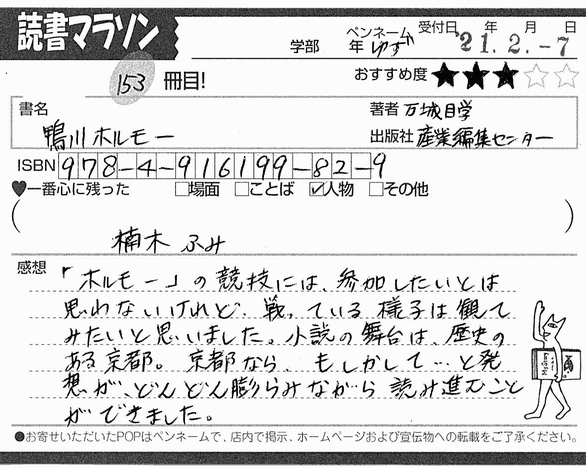 読書マラソン
学部 年 ペンネーム ゆず 受付日 '21年2.月-7日
153冊目!
おすすめ度 ★★★☆☆
書名 鴨川ホルモー
著者 万城目学
出版社 産業編集センター
ISBN 978-4-916199-82-9
♥一番心に残った □場面 □ことば ☑人物 □その他
(楠木ふみ)
感想 「ホルモー」の競技には、参加したいとは
思わないけれど、戦っている様子は観て
みたいと思いました。小説の舞台は、歴史の
ある京都。京都なら、もしかして…と発
想が、どんどん膨らみながら読み進むこと
ができました。
●お寄せいただいたPOPはペンネームで、店内で掲示、ホームページおよび宣伝物への転載をご了承ください。